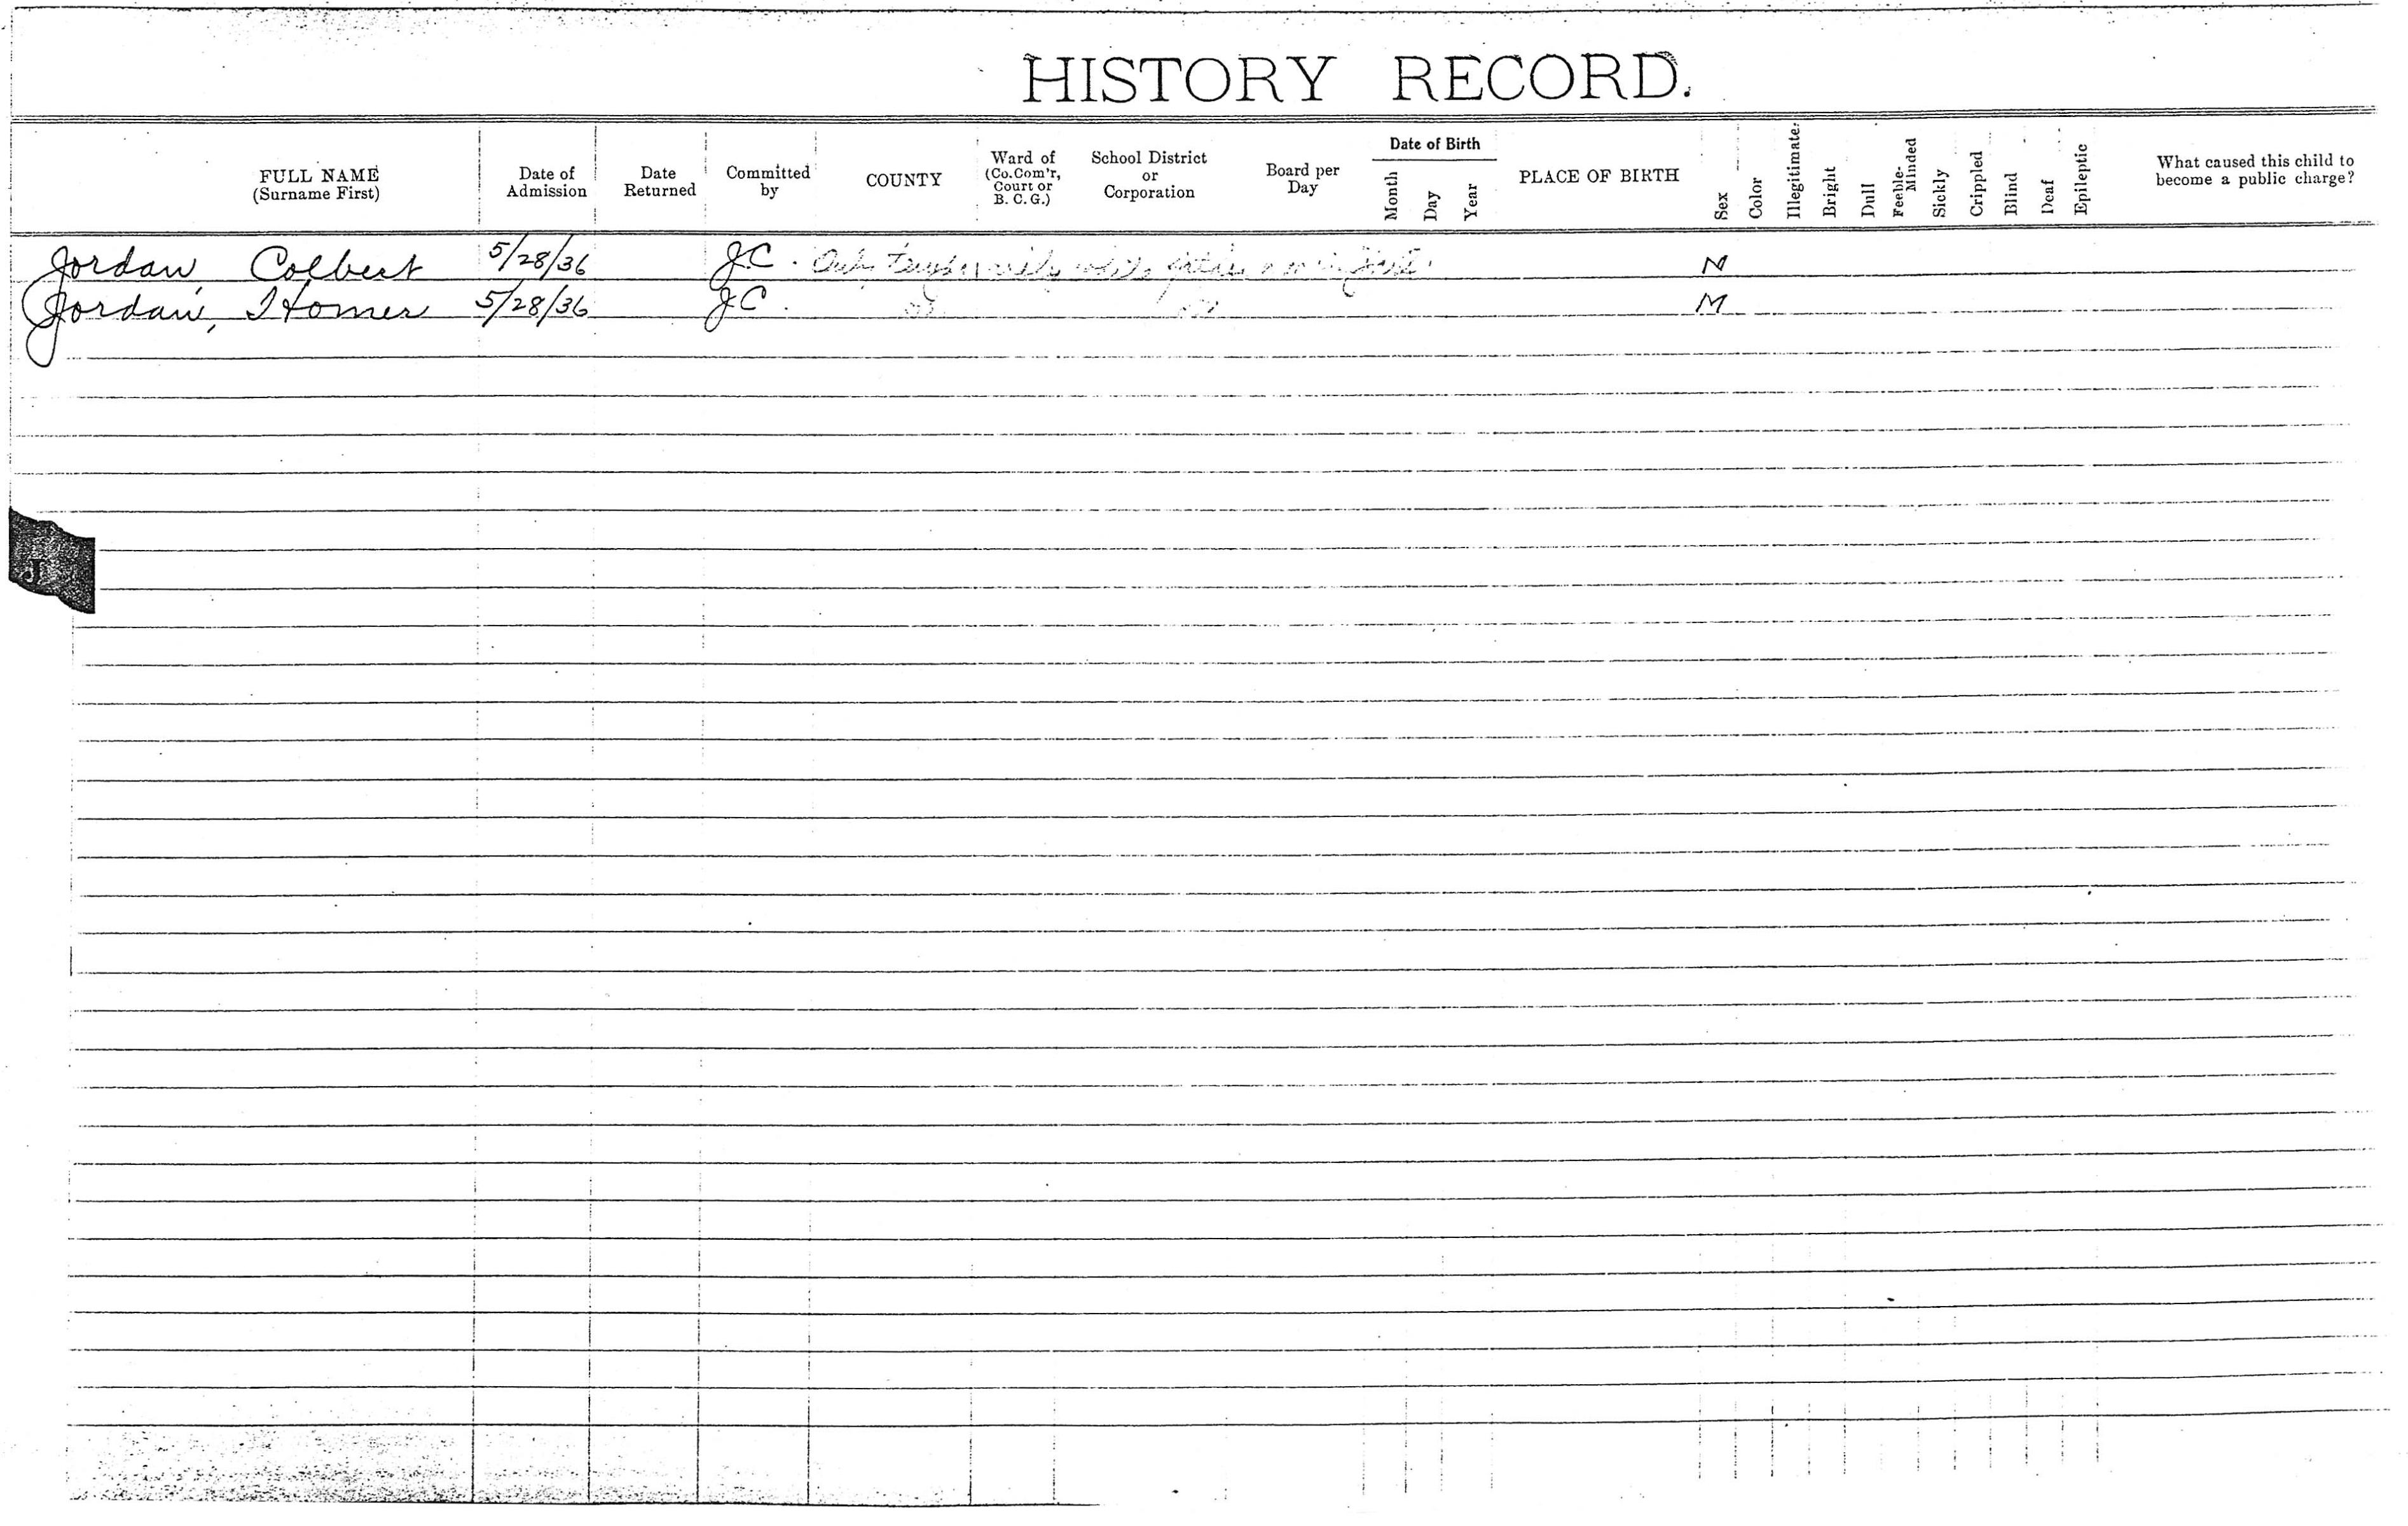 HISTORY RECORD.
FULL NAME
(Surname First)
Date of
Admission
Date
Returned
Committed
by
COUNTY
Ward of
(Co.Com'r,
Court or
B. C. G.)
School District
or
Corporation
Board per
Day
Date of Birth
Month
Day
Year
PLACE OF BIRTH
Sex
Color
Illegitimate
Bright
Dull
Feeble-
Minded
Sickly
Crippled
Blind
Deaf
Epileptic
What caused this child to
become a public charge?
Jordan, Colbert 5/28/36 J.C. Only temporarily while father M
Jordan, Homer 5/28/36 J.C. M
J